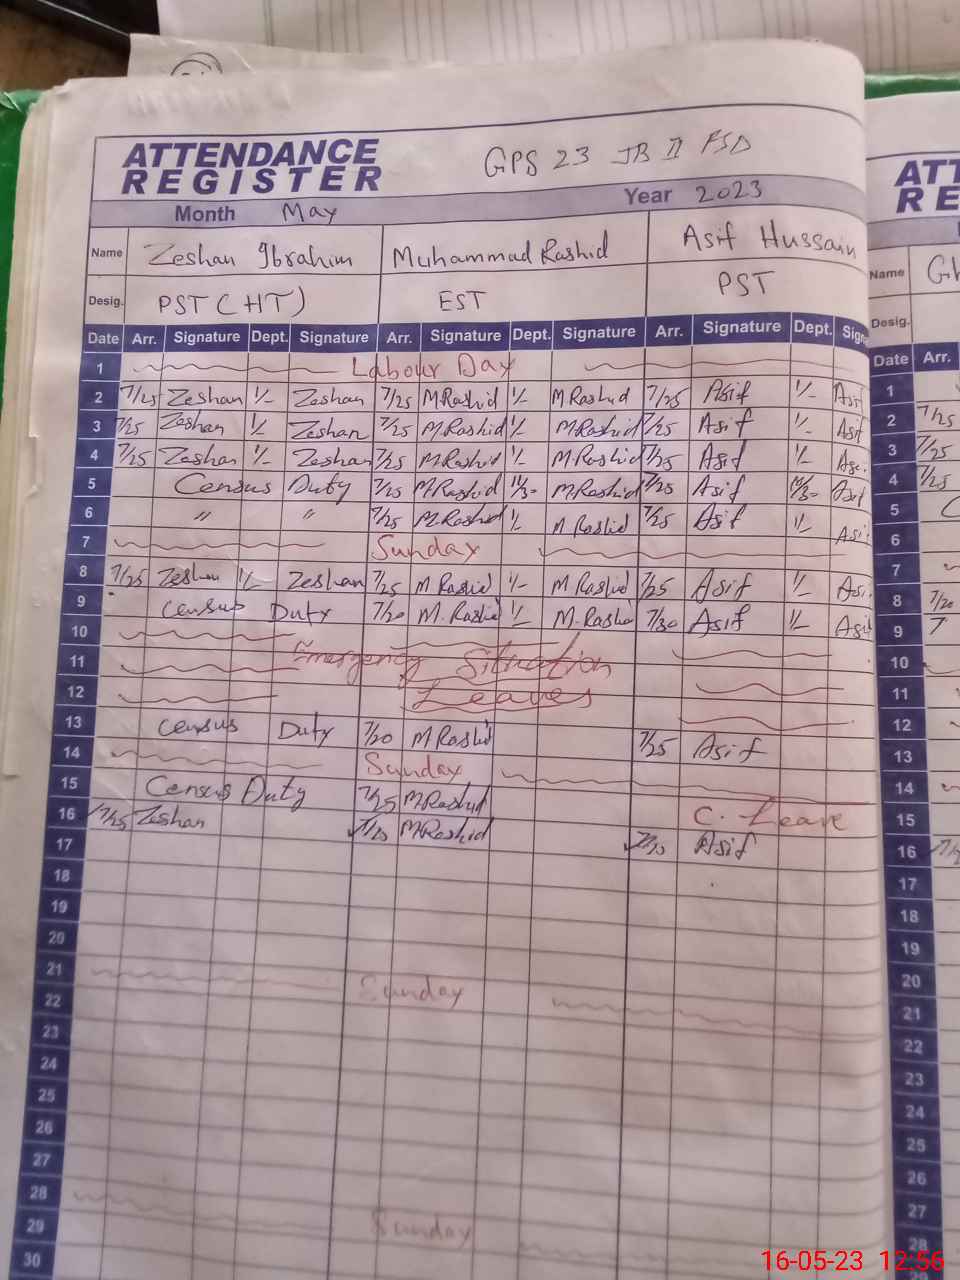 ATTENDANCE REGISTER GPS 23 JB II FSD
Month May Year 2023
Name Zeshan Ibrahim Muhammad Rashid Asif Hussain
Desig. PST (HT) EST PST
Date Arr. Signature Dept. Signature Arr. Signature Dept. Signature Arr. Signature Dept. Sign
1 Labour Day
2 7/25 Zeshan 1/- Zeshan 7/25 M Rashid 1/- M Rashid 7/25 Asif 1/- Asif
3 7/25 Zeshan 1/- Zeshan 7/25 M Rashid 1/- M Rashid 7/25 Asif 1/- Asif
4 7/25 Zeshan 1/- Zeshan 7/25 M Rashid 1/- M Rashid 7/25 Asif 1/- Asi
5 Census Duty 7/25 M Rashid 11/30 M Rashid 7/25 Asif Asif
6 〃 〃 7/25 M.Rashid 1/- M Rashid 7/25 Asif 1/- Asi
7 Sunday
8 7/25 Zeshan 1/- Zeshan 7/25 M Rashid 1/- M Rashid 7/25 Asif 1/- Asi
9 Census Duty 7/20 M.Rashid 1/- M.Rashid 7/30 Asif 1/- Asif
10
11 Emergency Situation
12 Leaves
13 Census Duty 7/20 M Rashid 7/25 Asif
14 Sunday
15 Census Duty 7/25 M.Rashid C. Leave
16 7/25 Zeshan M Rashid Asif
17
18
19
20
21 Sunday
22
23
24
25
26
27
28 Sunday
29
30
ATT
RE
Name Gh
Desig.
Date Arr.
1
2 7/25
3 7/25
4 7/25
5 C
6
7
8 7/20
9 7
10
11
12
13
14
15
16
17
18
19
20
21
22
23
24
25
26
27
28
16-05-23 12:56